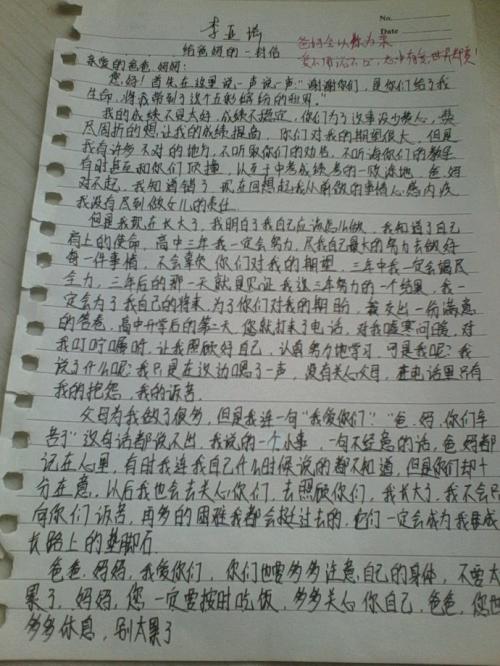 No.
Date
给爸妈的一封信
爸妈会以你为荣
亲爱的爸爸、妈妈:
您好!首先在这里说一声说一声:"谢谢你们,是你们给了我
生命,将我带到了这个五彩缤纷的世界。"
我的成绩不是太好,成绩不稳定,你们为了这事没少操心,想
尽周折的想让我的成绩提高,你们对我的期望很大,但是
我有许多不对的地方,不听取你们的劝告,不听海你们的教导
有时甚至和你们顶撞,以至于中考成绩考的一败涂地,爸妈
对不起,我知道错了,现在回想起我从前做的事情心感内疚
我没有尽到做女儿的责任.
但是我现在长大了,我明白了我自己应该怎么做,我知道了自己
肩上的使命,高中三年我一定会努力,尽我自己最大的努力去做好
每一件事情,不会辜负你们对我的期望,三年中我一定会竭尽
全力,三年后的那一天就是见证我这三年努力的一个结果,我一
定会为了我自己的将来,为了你们对我的期盼,我交出一份满意
的答卷,高中开学后的第二天,您就打来了电话,对我嘘寒问暖,对
我叮咛嘱咐,让我照顾好自己,认真努力地学习,可是我呢?我
说了什么呢?我只是在这边嗯了一声,没有关心父母,在电话里只有
我的抱怨,我的诉苦.
父母为我做了很多,但是我连一句"我爱你们""爸、妈,你们辛
苦了"这句话都说不出,我说的一个小事,一句不经意的话,爸妈都
记在心里,有时我连我自己什么时候说的都不知道,但是你们却十
分在意,以后我也会去关心你们,去照顾你们,我长大了,我不会只
向你们诉苦,再多的困难我都会挺过去的,它们一定会成为我要成
长路上的垫脚石
爸爸、妈妈,我爱你们,你们也要多多注意自己的身体,不要太
累了,妈妈,您一定要按时吃饭,多多关心你自己,爸爸,您也
多多休息,别太累了